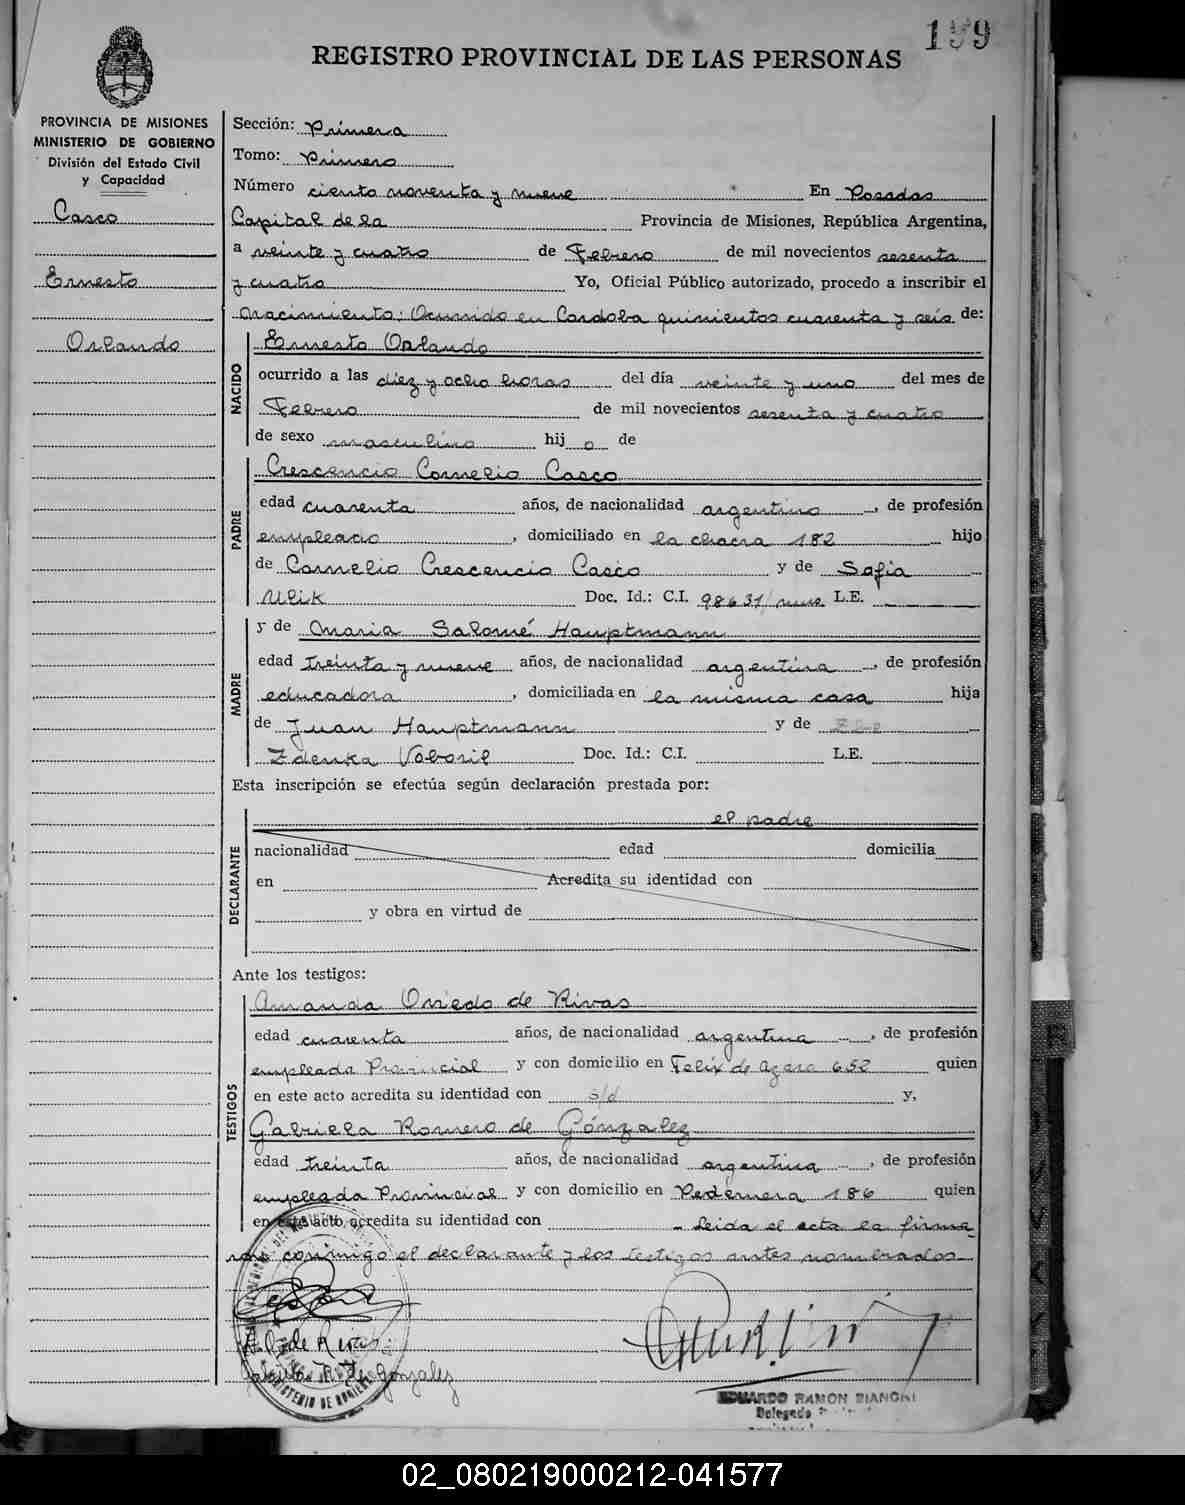 199
REGISTRO PROVINCIAL DE LAS PERSONAS
PROVINCIA DE MISIONES
MINISTERIO DE GOBIERNO
División del Estado Civil
y Capacidad
Casco
Ernesto
Orlando
Sección: Primera
Tomo: Primero
Número ciento noventa y nueve En Posadas
Capital de la Provincia de Misiones, República Argentina,
a veinte y cuatro de Febrero de mil novecientos sesenta
y cuatro Yo, Oficial Público autorizado, procedo a inscribir el
nacimiento: Ocurrido en Cordoba quinientos cuarenta y seis de:
NACIDO
Ernesto Orlando
ocurrido a las diez y ocho horas del día veinte y uno del mes de
Febrero de mil novecientos sesenta y cuatro
de sexo masculino hij o de
PADRE
Crescencio Cornelio Casco
edad cuarenta años, de nacionalidad argentino, de profesión
empleado, domiciliado en la chacra 182 hijo
de Cornelio Crescencio Casco y de Sofia
Ulik Doc. Id.: C.I. 98631/ L.E.
MADRE
y de Maria Salomé Hauptmann
edad treinta y nueve años, de nacionalidad argentina, de profesión
educadora, domiciliada en la misma casa hija
de Juan Hauptmann y de
Zdenka Voboril Doc. Id.: C.I. L.E.
Esta inscripción se efectúa según declaración prestada por:
el padre
DECLARANTE
nacionalidad edad domicilia
en Acredita su identidad con
y obra en virtud de
Ante los testigos:
TESTIGOS
Amanda Oviedo de Rivas
edad cuarenta años, de nacionalidad argentina, de profesión
empleada Provincial y con domicilio en Felix de Azara 652 quien
en este acto acredita su identidad con s/d y,
Gabriela Romero de Gónzalez
edad treinta años, de nacionalidad argentina, de profesión
empleada Provincial y con domicilio en Pedernera 186 quien
en este acto acredita su identidad con - Leida el acta la firma
ron conmigo el declarante y los testigos antes nombrados
de Rivas
de Gonzalez
EDUARDO RAMON BIANCHI
Delegado
02_080219000212-041577